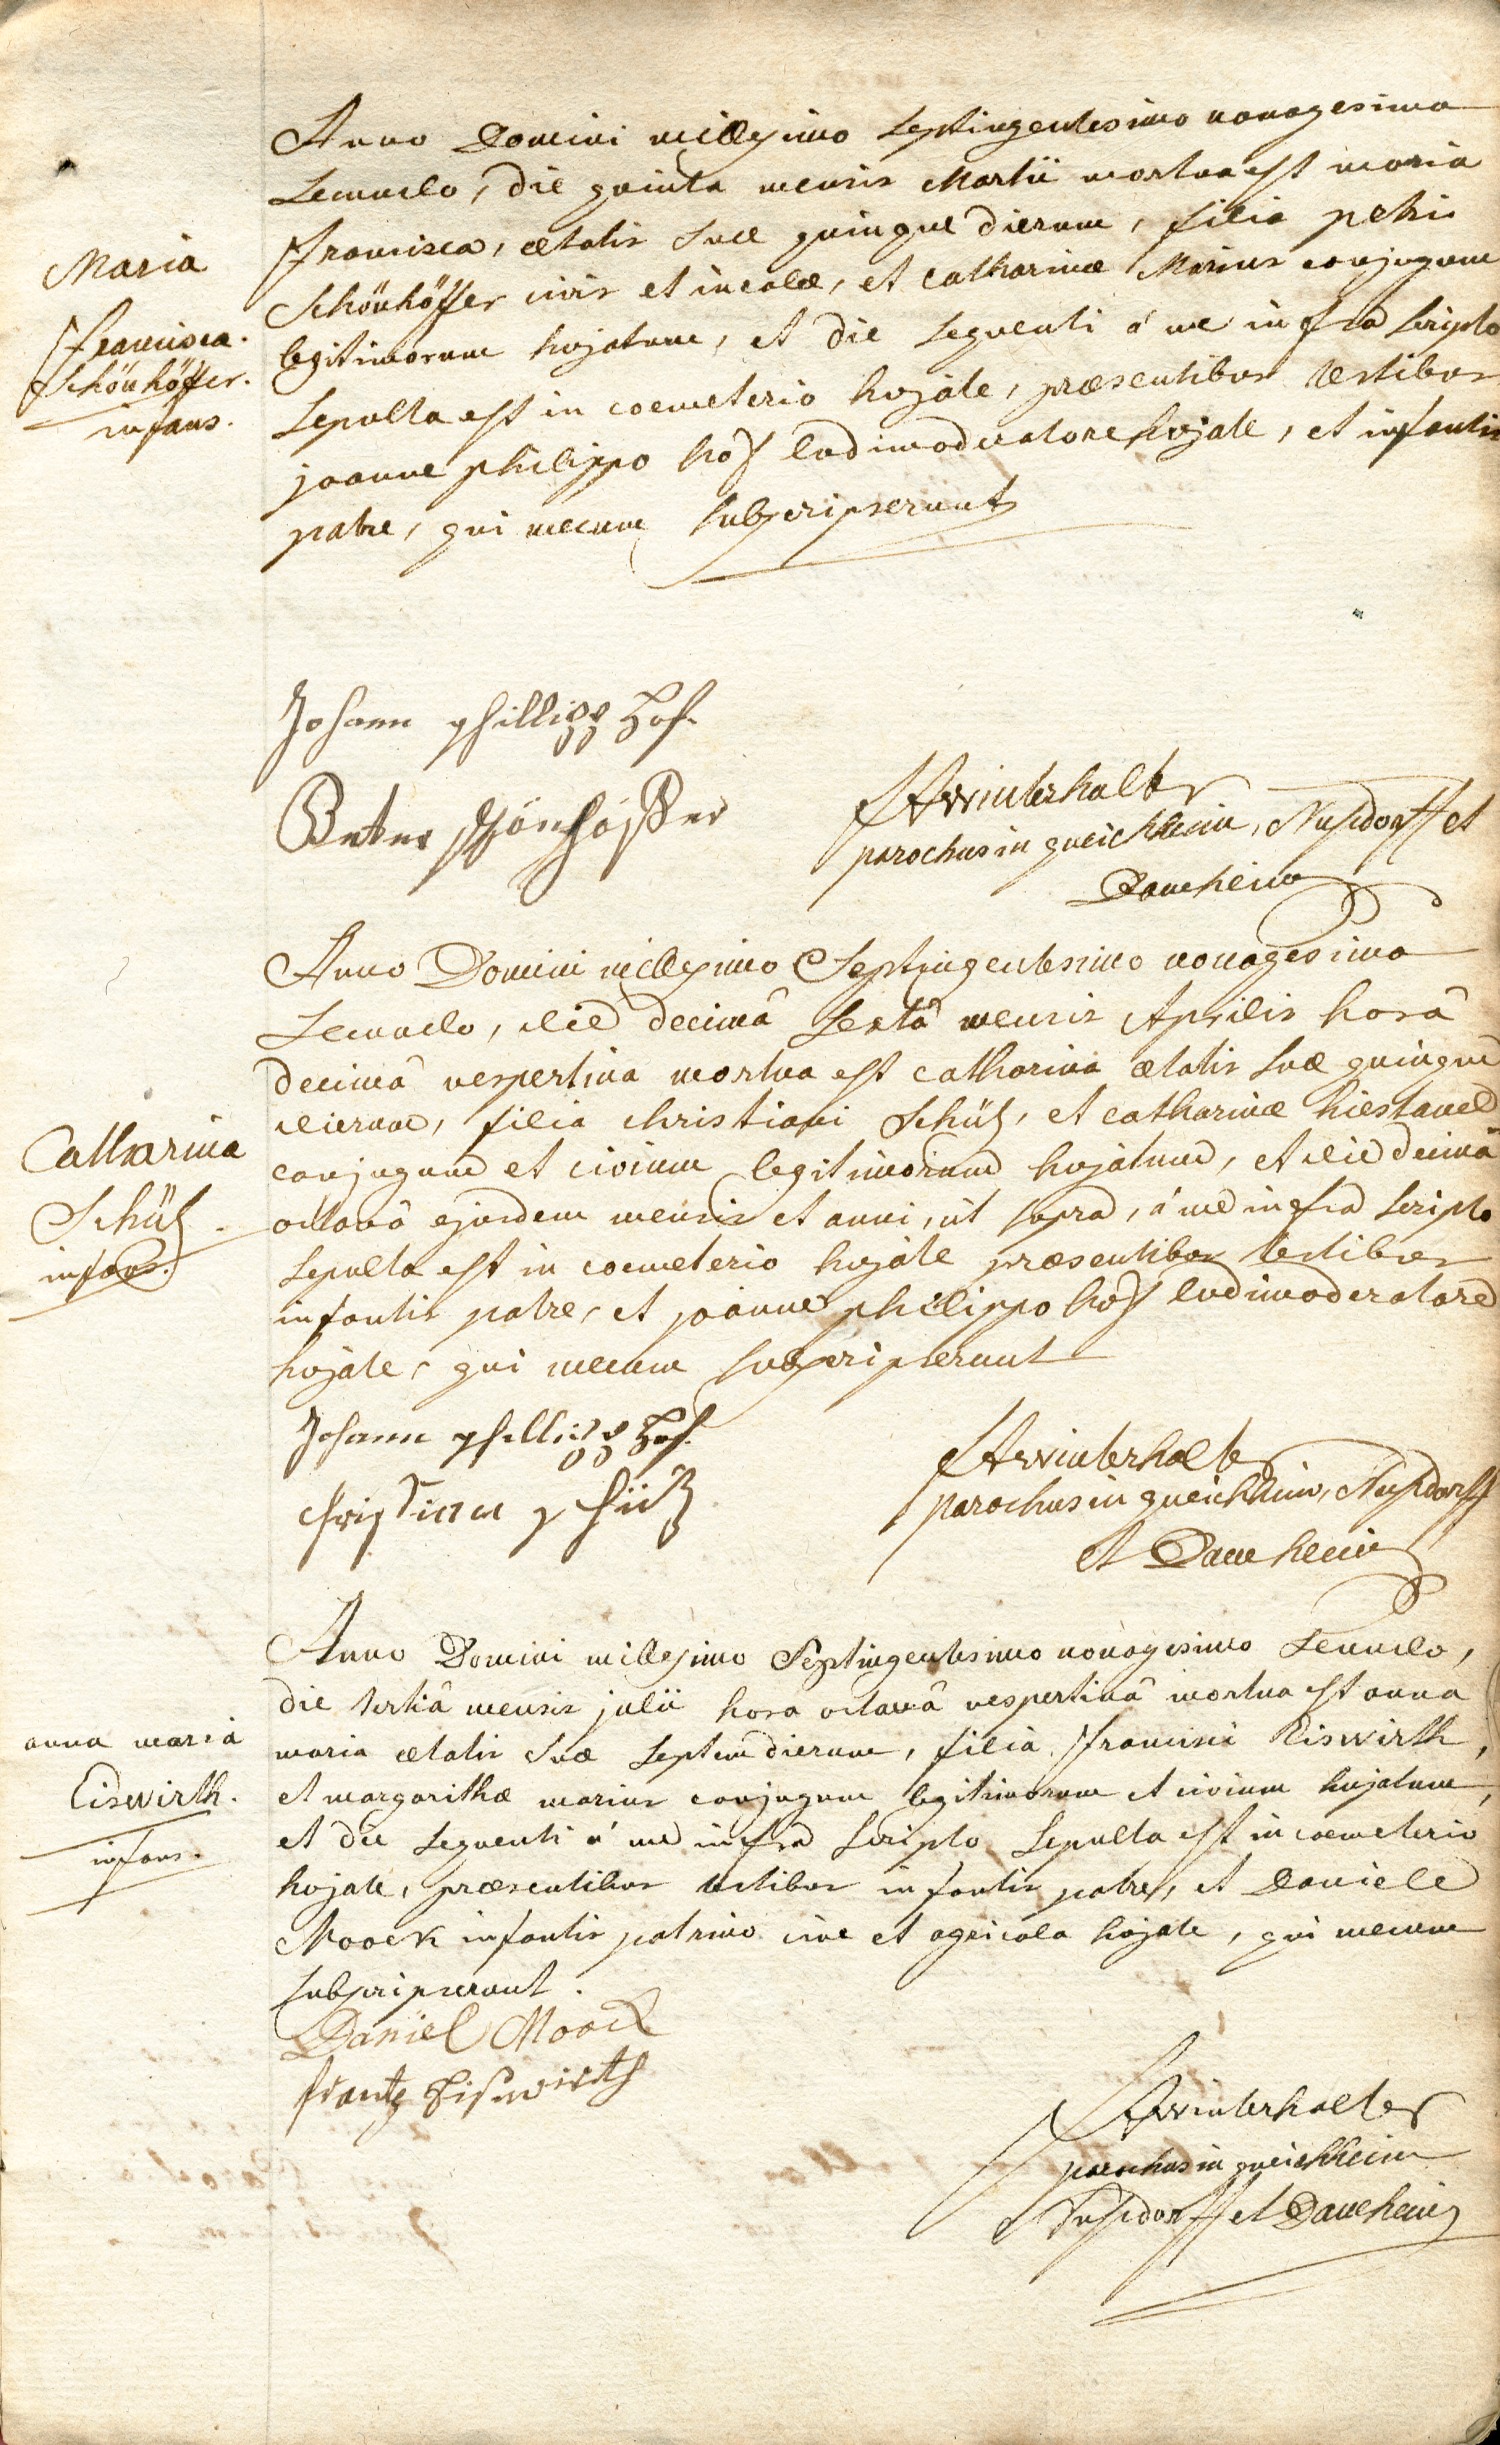 Maria
Francisca
Schönhöffer.
infans.
Anno Domini millesimo Septingentesimo nonagesimo
Secundo, die quinta mensis Martii mortua est maria
Francisca, ætatis suæ quinque dierum, filia petri
Schönhöffer civis et incolæ, et catharinæ Marius conjugum
legitimorum hojatum, et die sequenti á me infra scripto
Sepulta est in coemeterio hojate, præsentibus testibus
joanne philippo hof ludimoderatore hojate, et infantis
patre, qui mecum subscripserunt
Johann phillipp Hof.
Peter schönhöffer
FAwinterhalter
parochus in queichheim, Nusdorff et
Damheim
Catharina
Schüz.
infans.
Anno Domini millesimo Septingentesimo nonagesimo
Secundo, die decimâ Sextâ mensis Aprilis horâ
decimâ vespertina mortua est catharina ætatis suæ quinque
dierum, filia christiani Schüz, et catharinæ hiestand
conjugum et civium legitimorum hojátum, et die decimâ
octavâ ejusdem mensis et anni, ut supra, á me infra scripto
Sepulta est in coemeterio hojáte præsentibus testibus
infantis patre, et joanne philippo hof ludimoderatore
hojate, qui mecum subscripserunt
Johann phillipp Hof.
christian schüz
FAwinterhalter
parochus in queichheim, Nusdorff
et Damheim
anna maria
Eiswirth.
infans.
Anno Domini millesimo Septingentesimo nonagesimo Secundo,
die tertiâ mensis julii hora octavâ vespertinâ mortua est anna
maria ætatis suæ septem dierum, filia Francisci Eiswirth,
et margarithæ marius conjugum legitimorum et civium hujatum,
et die sequenti á me infra scripto sepulta est in coemeterio
hojate, præsentibus testibus infantis patre, et Daniele
Moock infantis patrino cive et agricola hojate, qui mecum
subscripserunt.
Daniel Moock
frantz Eiswirth
FAwinterhalter
parochus in queichheim
Nusdorff et Damheim